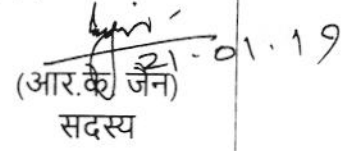 21-01.19
(आर.के. जैन)
सदस्य